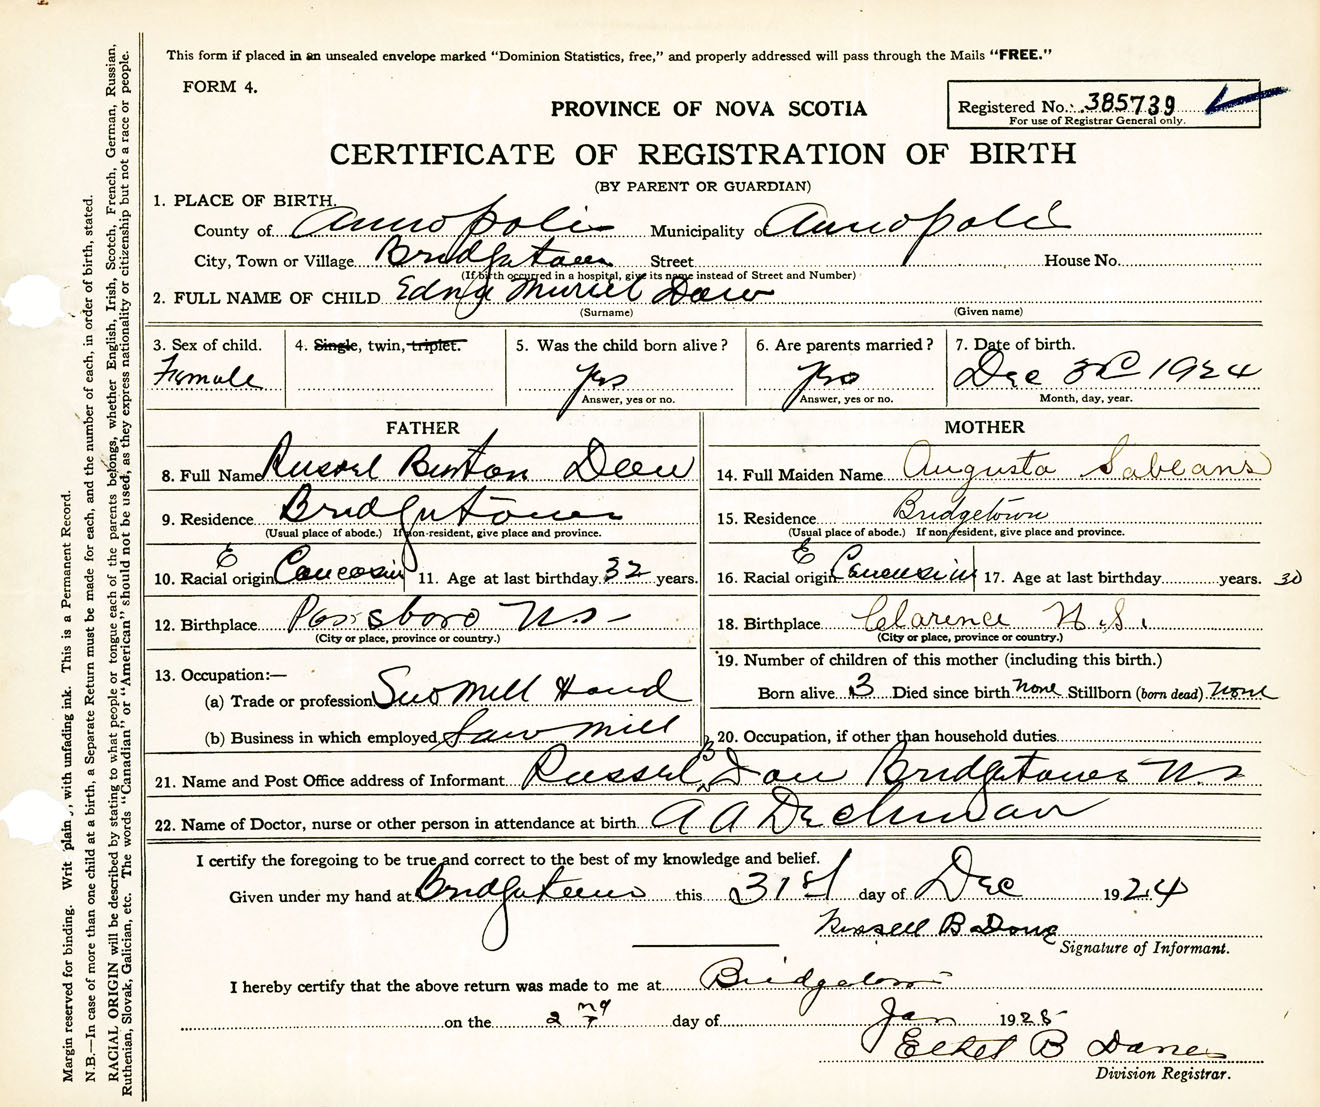 This form if placed in an unsealed envelope marked "Dominion Statistics, free," and properly addressed will pass through the Mails "FREE."
FORM 4.
PROVINCE OF NOVA SCOTIA
Registered No. 385739
For use of Registrar General only.
CERTIFICATE OF REGISTRATION OF BIRTH
(BY PARENT OR GUARDIAN)
1. PLACE OF BIRTH.
County of Annopolis Municipality of Annopolis
City, Town or Village Bridgetown Street House No.
(If birth occurred in a hospital, give its name instead of Street and Number)
2. FULL NAME OF CHILD Edna Muriel Daw
(Surname) (Given name)
3. Sex of child. 4. Single, twin, triplet. 5. Was the child born alive? 6. Are parents married? 7. Date of birth.
Female yes yes Dec 3rd 1924
Answer, yes or no. Answer, yes or no. Month, day, year.
FATHER
8. Full Name Russel Burton
9. Residence Bridgetown
(Usual place of abode.) If non-resident, give place and province.
E
10. Racial origin 11. Age at last birthday 32 years.
12. Birthplace Parrsboro N.S.
(City or place, province or country.)
13. Occupation:—
(a) Trade or profession Saw Mill Hand
(b) Business in which employed Saw Mill
MOTHER
14. Full Maiden Name Augusta Sabeans
15. Residence Bridgetown
(Usual place of abode.) If non-resident, give place and province.
E
16. Racial origin 17. Age at last birthday years. 30
18. Birthplace Clarence N.S.
(City or place, province or country.)
19. Number of children of this mother (including this birth.)
Born alive 3 Died since birth none Stillborn (born dead) none
20. Occupation, if other than household duties
21. Name and Post Office address of Informant Russel B Daw Bridgetown N.S
22. Name of Doctor, nurse or other person in attendance at birth A A Dechman
I certify the foregoing to be true and correct to the best of my knowledge and belief.
Given under my hand at Bridgetown this 31st day of Dec 1924
Russell B
Signature of Informant.
I hereby certify that the above return was made to me at Bridgetown
on the 2 day of Jan 1925
Ethel B
Division Registrar.
Margin reserved for binding. Writ plain, with unfading ink. This is a Permanent Record.
N.B.—In case of more than one child at a birth, a Separate Return must be made for each, and the number of each, in order of birth, stated.
RACIAL ORIGIN will be described by stating to what people or tongue each of the parents belongs, whether English, Irish, Scotch, French, German, Russian,
Ruthenian, Slovak, Galician, etc. The words "Canadian" or "American" should not be used, as they express nationality or citizenship but not a race or people.